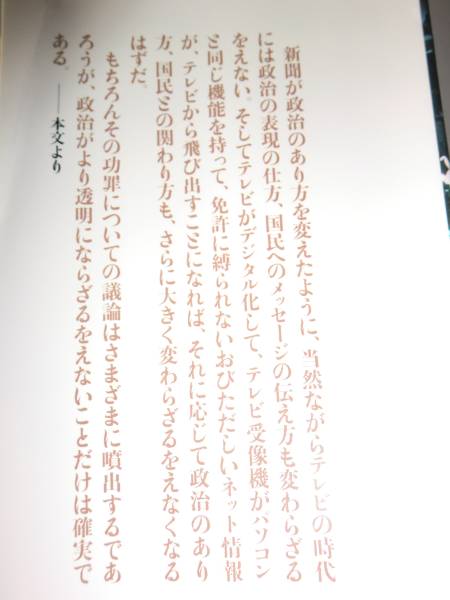 新聞が政治のあり方を変えたように、当然ながらテレビの時代
には政治の表現の仕方、国民へのメッセージの伝え方も変わらざる
をえない。そしてテレビがデジタル化して、テレビ受像機がパソコン
と同じ機能を持って、免許に縛られないおびただしいネット情報
が、テレビから飛び出すことになれば、それに応じて政治のあり
方、国民との関わり方も、さらに大きく変わらざるをえなくなる
はずだ。
もちろんその功罪についての議論はさまざまに噴出するであ
ろうが、政治がより透明にならざるをえないことだけは確実で
ある。 ――本文より